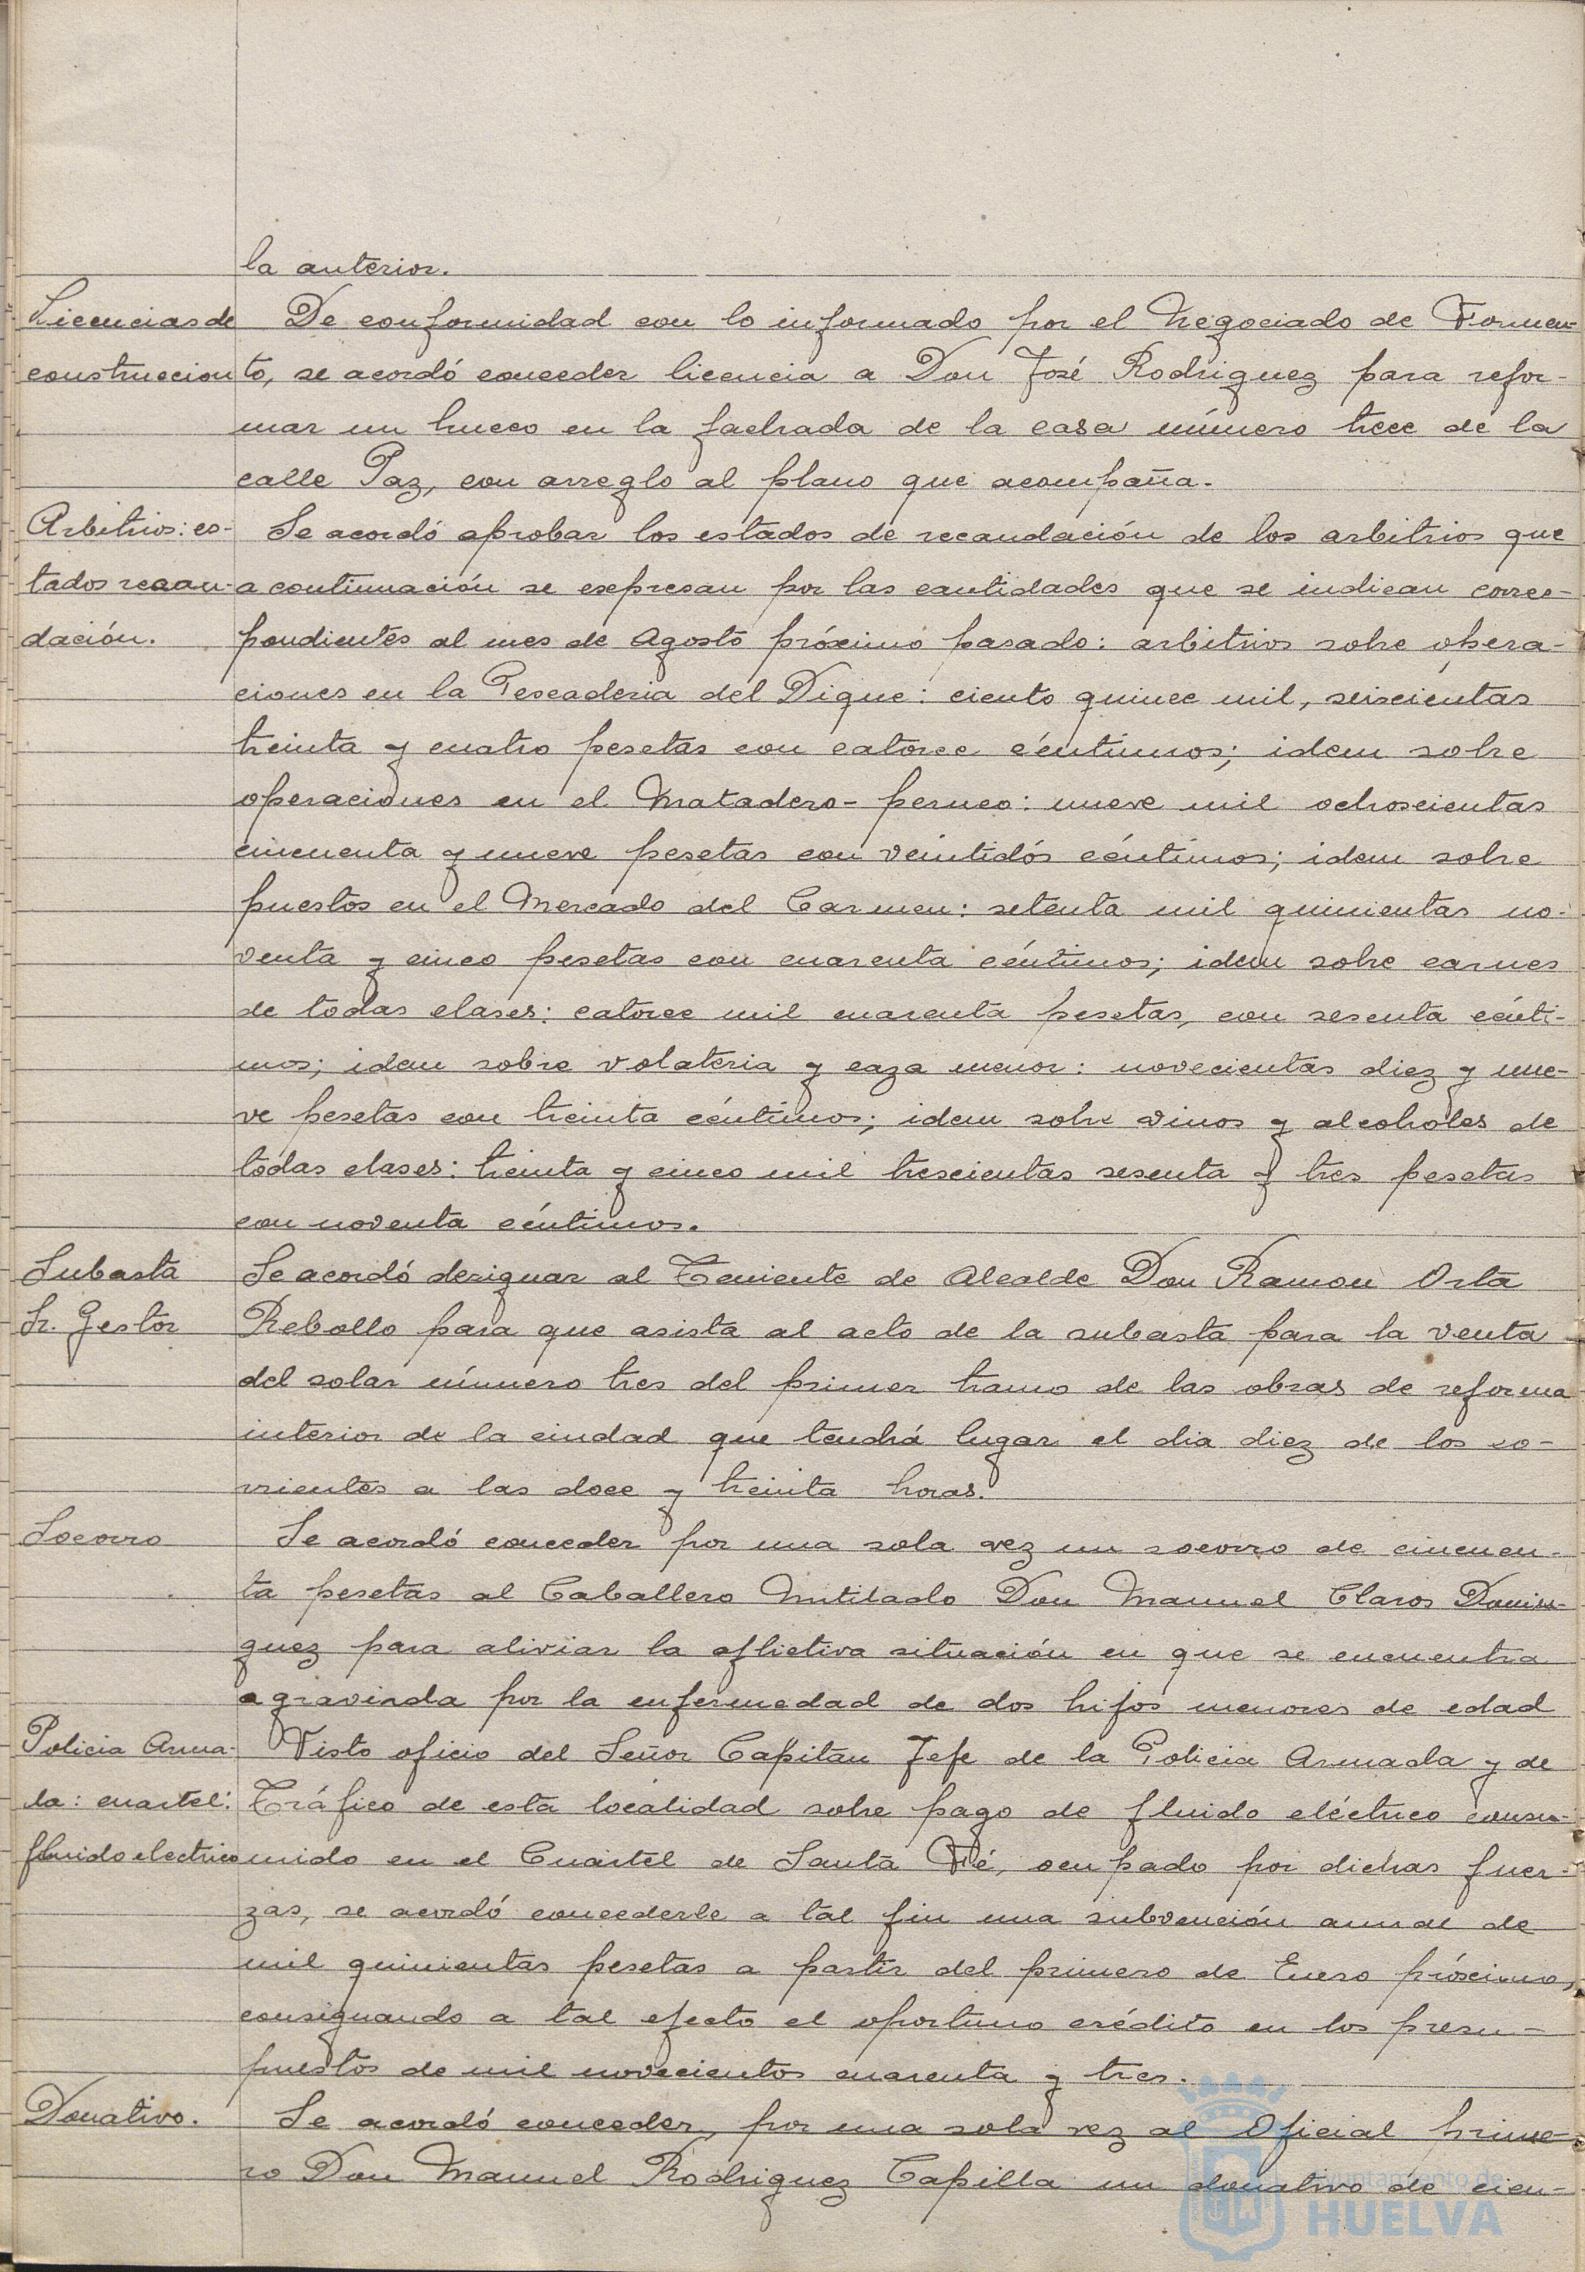 la anterior.
Licencias de
construccion
De conformidad con lo informado por el Negociado de Fomen-
to, se acordó conceder licencia a Don José Rodriguez para refor-
mar un hueco en la fachada de la casa número trece de la
calle Paz, con arreglo al plano que acompaña.
Arbitrios: es-
tados recau-
dación.
Se acordó aprobar los estados de recaudación de los arbitrios que
a continuación se expresan por las cantidades que se indican corres-
pondientes al mes de Agosto próximo pasado: arbitrios sobre opera-
ciones en la Pescaderia del Dique: ciento quince mil, seiscientas
treinta y cuatro pesetas con catorce céntimos; idem sobre
operaciones en el Matadero-perneo: nueve mil ochoscientas
cincuenta y nueve pesetas con veintidós céntimos; idem sobre
puestos en el Mercado del Carmen: setenta mil quinientas no-
venta y cinco pesetas con cuarenta céntimos; idem sobre carnes
de todas clases: catorce mil cuarenta pesetas, con sesenta cénti-
mos; idem sobre volateria y caza menor: novecientas diez y nue-
ve pesetas con treinta céntimos; idem sobre vinos y alcoholes de
todas clases: treinta y cinco mil trescientas sesenta y tres pesetas
con noventa céntimos.
Subasta
Sr. Gestor
Se acordó designar al Teniente de Alcalde Don Ramon Orta
Rebollo para que asista al acto de la subasta para la venta
del solar número tres del primer tramo de las obras de reforma
interior de la ciudad que tendrá lugar el dia diez de los co-
rrientes a las doce y treinta horas.
Socorro
Se acordó conceder por una sola vez un socorro de cincuen-
ta pesetas al Caballero Mutilado Don Manuel Claros Domin-
guez para aliviar la aflictiva situación en que se encuentra
agraviada por la enfermedad de dos hijos menores de edad
Policia Arma-
da: cuartel:
fluido electrico
Visto oficio del Señor Capitan Jefe de la Policia Armada y de
Tráfico de esta localidad sobre pago de fluido eléctrico consu-
mido en el Cuartel de Santa Fé, ocupado por dichas fuer-
zas, se acordó concederle a tal fin una subvención anual de
mil quinientas pesetas a partir del primero de Enero próximo,
consignando a tal efecto el oportuno crédito en los presu-
puestos de mil novecientos cuarenta y tres.
Donativo.
Se acordó conceder, por una sola vez al Oficial prime-
ro Don Manuel Rodriguez Capilla un donativo de cien-
Ayuntamiento de
HUELVA